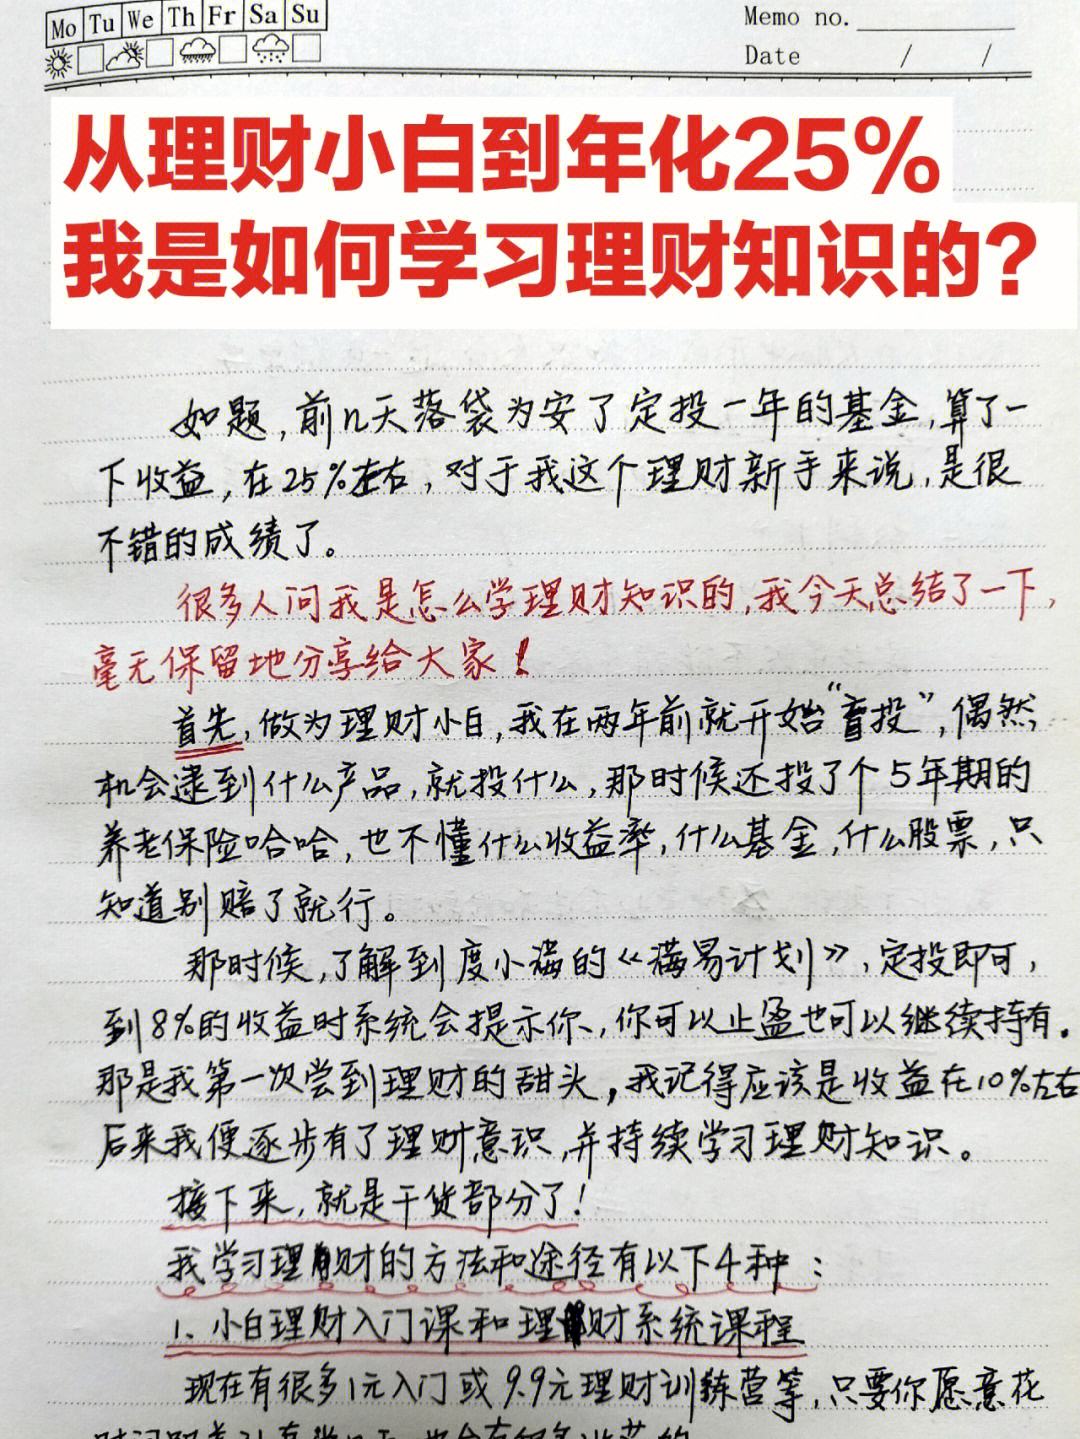 Mo Tu We Th Fr Sa Su
Memo no.
Date / /
从理财小白到年化25%
我是如何学习理财知识的?
如题,前几天落袋为安了定投一年的基金,算了一
下收益,在25%左右,对于我这个理财新手来说,是很
不错的成绩了。
很多人问我是怎么学理财知识的,我今天总结了一下,
毫无保留地分享给大家!
首先,做为理财小白,我在两年前就开始“盲投”,偶然
机会逮到什么产品,就投什么,那时候还投了个5年期的
养老保险哈哈,也不懂什么收益率,什么基金,什么股票,只
知道别赔了就行。
那时候,了解到度小满的《满易计划》,定投即可,
到8%的收益时系统会提示你,你可以止盈也可以继续持有.
那是我第一次尝到理财的甜头,我记得应该是收益在10%左右
后来我便逐步有了理财意识,并持续学习理财知识。
接下来,就是干货部分了!
我学习理财的方法和途径有以下4种:
1、小白理财入门课和理财系统课程
现在有很多1元入门或9.9元理财训练营等,只要你愿意花